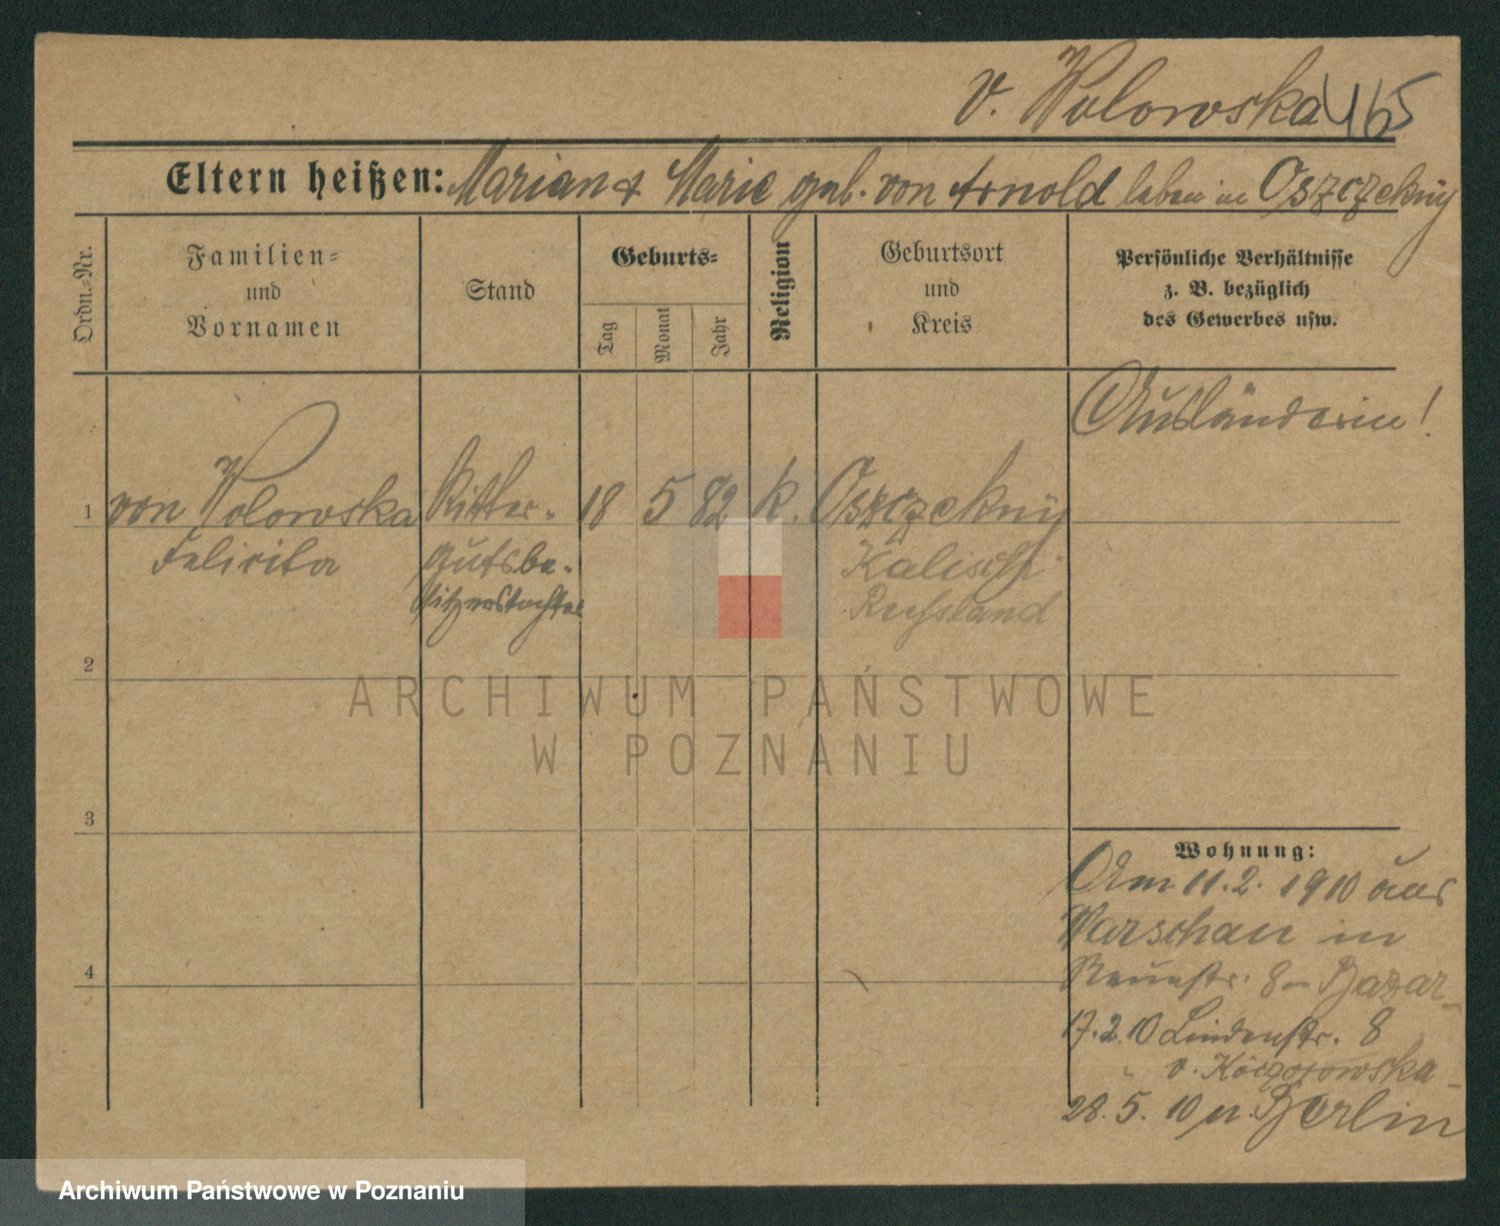 v. Wolowska 165
Eltern heißen: Marian & Marie geb. von Arnold leben in Oszczeknij
Ordn.-Nr.
Familien-
und
Vornamen
Stand
Geburts-
Tag
Monat
Jahr
Religion
Geburtsort
und
Kreis
Persönliche Verhältnisse
z. B. bezüglich
des Gewerbes usw.
Ausländerin!
1 von Wolowska Ritter- 18 5 82 k. Oszczeknij
Felicita Gutsbe- Kalisch
sitzerstochter Russland
2
ARCHIWUM PAŃSTWOWE
W POZNANIU
3
Wohnung:
Am 11.2.1910 aus
Warschau in
4
Neuestr. 8 Bazar
17.2.10 Lindenstr. 8
v.
28.5.10 n. Berlin
Archiwum Państwowe w Poznaniu